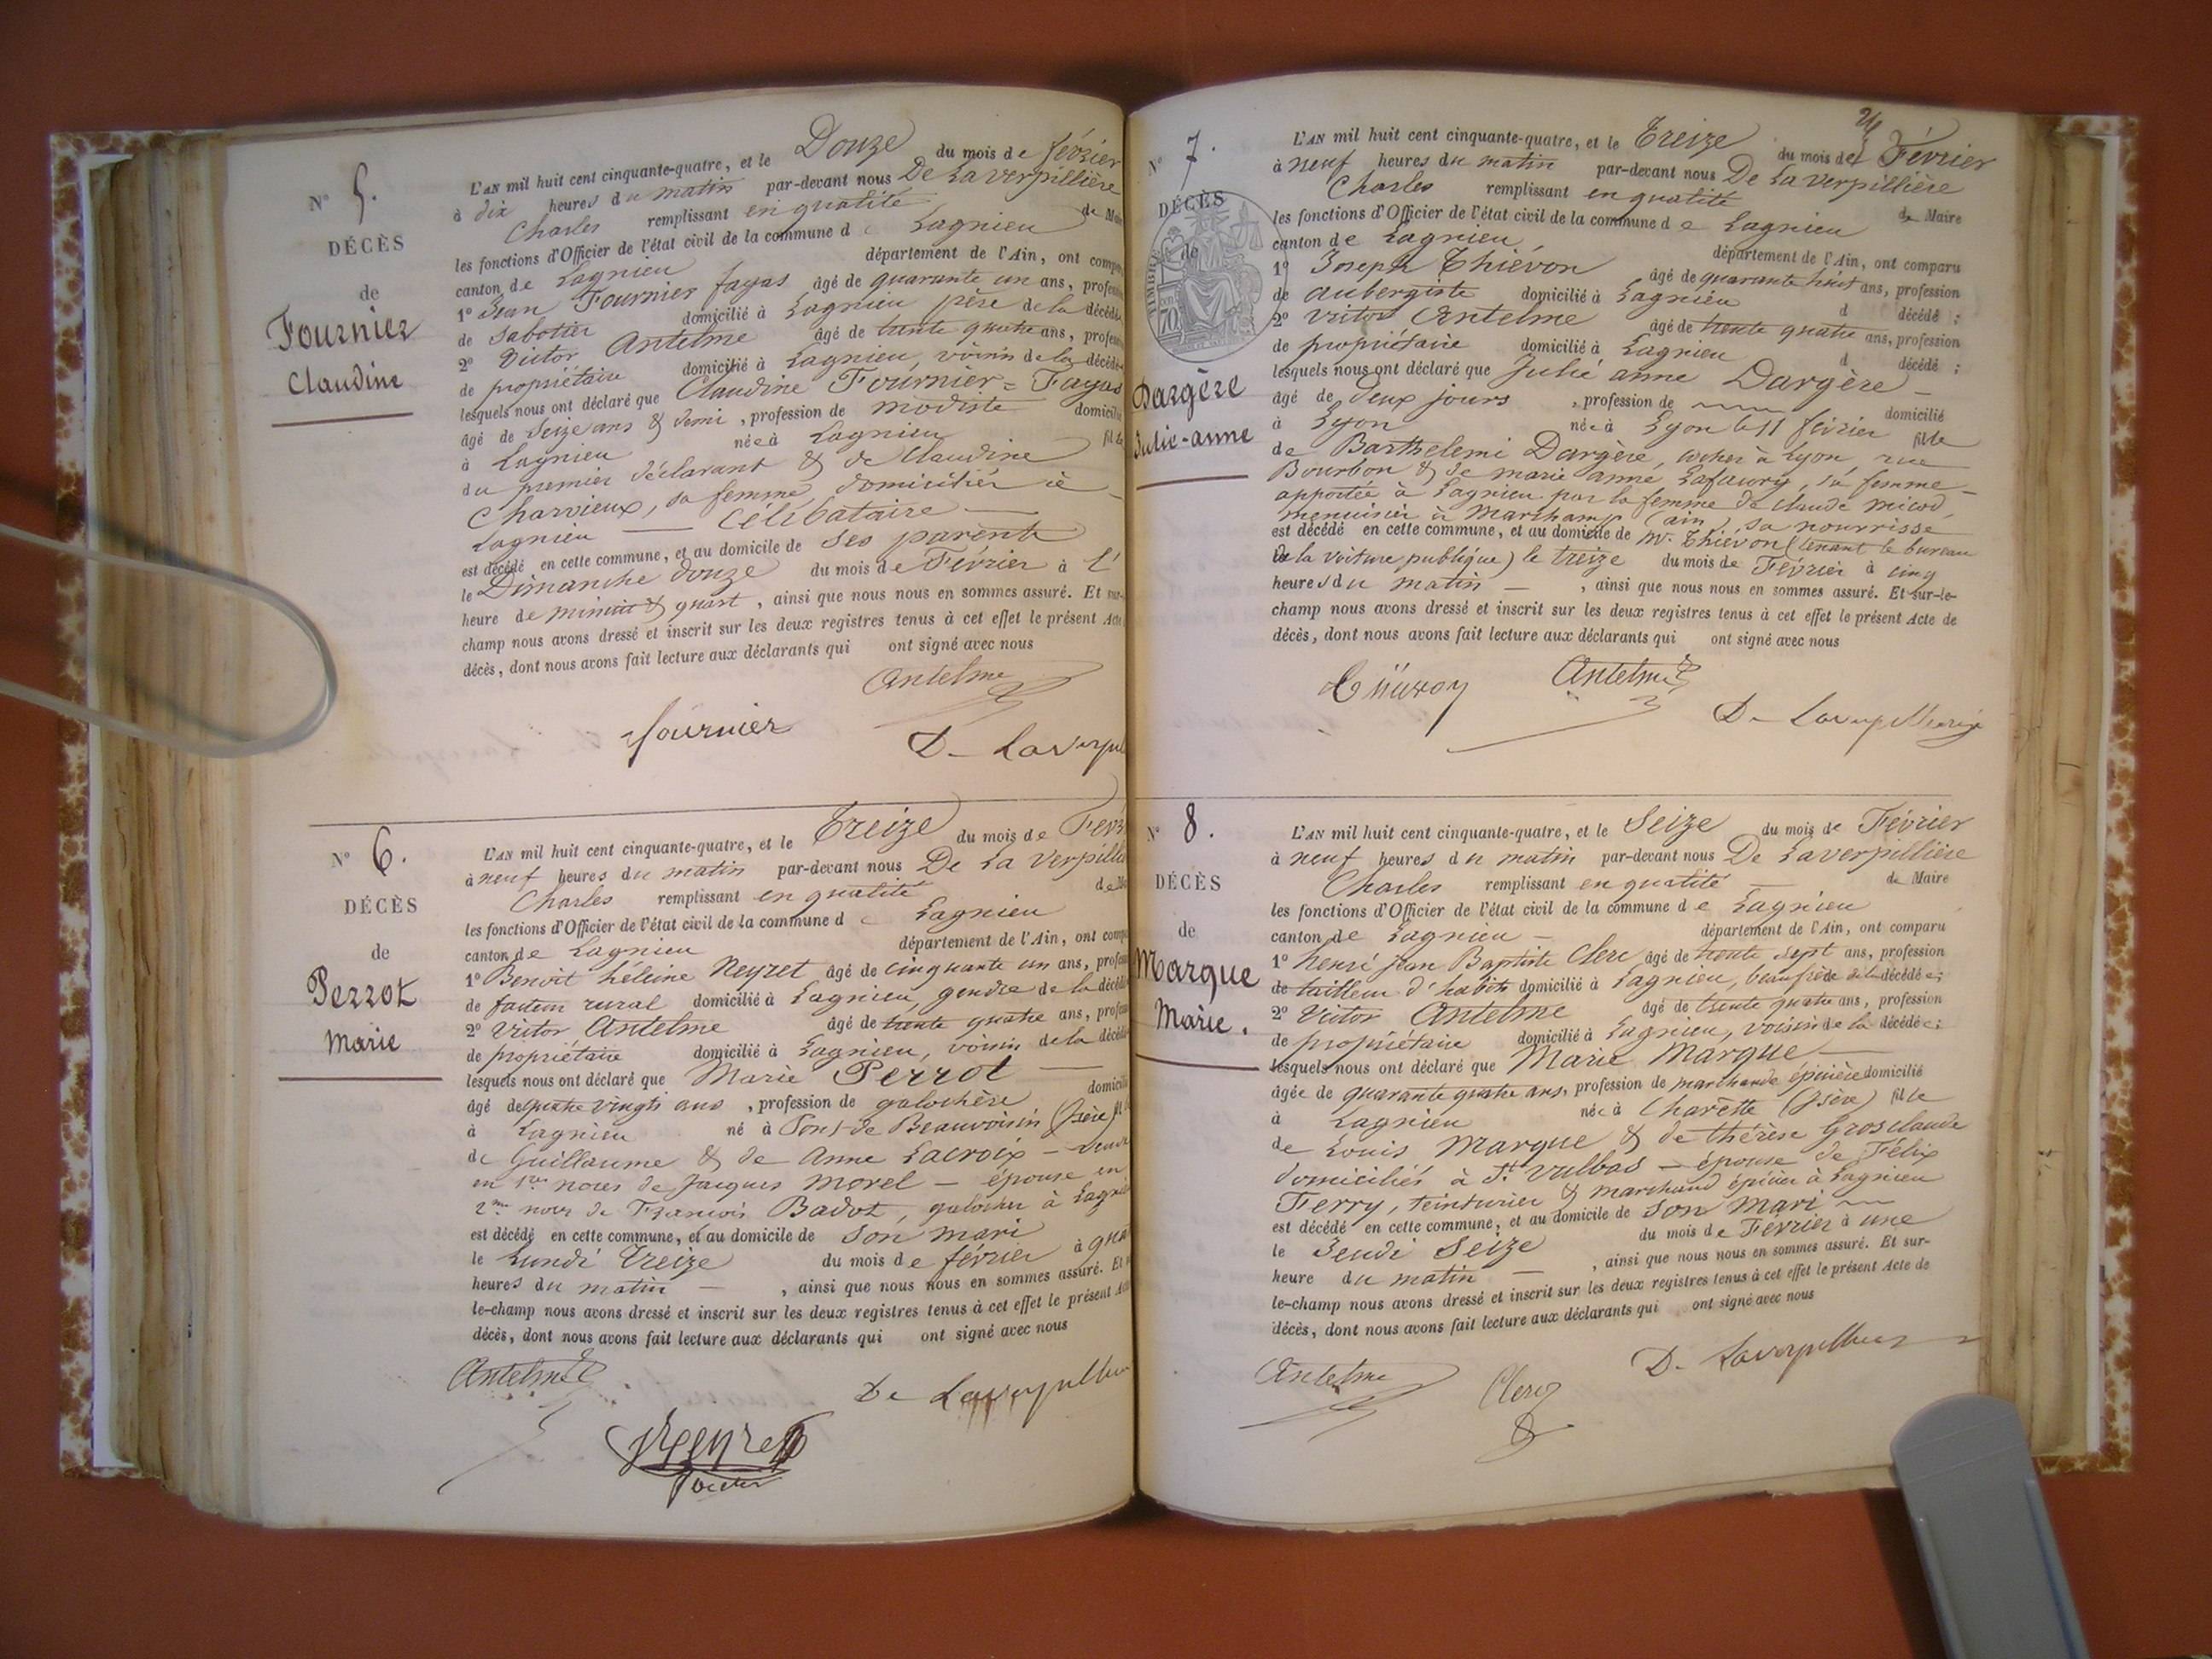 N° 5.
DÉCÈS
de
Fournier
Claudine
L'AN mil huit cent cinquante-quatre, et le Douze du mois de février
à dix heures du matin par-devant nous De Laverpillière
Charles remplissant en qualité de Mair
les fonctions d'Officier de l'état civil de la commune de Lagnieu
canton de Lagnieu département de l'Ain, ont comp
1° Jean Fournier fayas âgé de quarante un ans, profes
de Sabotier domicilié à Lagnieu père de la décédé
2° Victor Antelme âgé de trente quatre ans, profes
de propriétaire domicilié à Lagnieu, voisin de la décédé
lesquels nous ont déclaré que Claudine Fournier = Fayas
âgé de Seize ans & demi, profession de modiste domicili
à Lagnieu née à Lagnieu fille
du premier déclarant & de Claudine
Charvieux, sa femme, domiciliés à
Lagnieu — Célibataire —
est décédé en cette commune, et au domicile de ses parents
le Dimanche douze du mois de Février à l'
heure de minuit & quart, ainsi que nous nous en sommes assuré. Et sur-
champ nous avons dressé et inscrit sur les deux registres tenus à cet effet le présent Acte
décès, dont nous avons fait lecture aux déclarants qui ont signé avec nous
Antelme
fournier
D- Laverpil
N° 6.
DÉCÈS
de
Perrot
Marie
L'AN mil huit cent cinquante-quatre, et le Treize du mois de Févr
à neuf heures du matin par-devant nous De La Verpilli
Charles remplissant en qualité de
les fonctions d'Officier de l'état civil de la commune de Lagnieu
canton de Lagnieu département de l'Ain, ont comp
1° Benoit héleine Neyret âgé de cinquante un ans, profes
de facteur rural domicilié à Lagnieu, gendre de la décédé
2° Victor Antelme âgé de trente quatre ans, profes
de propriétaire domicilié à Lagnieu, voisin de la décédé
lesquels nous ont déclaré que Marie Perrot —
âgé de quatre vingts ans, profession de galochère domicili
à Lagnieu né à Pont-de Beauvoisin (Isère) fil
de Guillaume & de Anne Lacroix — veuve
en 1res noces de Jacques Morel — épouse en
2me noces de François Badot, galochier à Lagni
est décédé en cette commune, et au domicile de son mari
le Lundi Treize du mois de février à qua
heures du matin —, ainsi que nous nous en sommes assuré. Et
le-champ nous avons dressé et inscrit sur les deux registres tenus à cet effet le présent
décès, dont nous avons fait lecture aux déclarants qui ont signé avec nous
Antelme
De Laverpillier
Neyret
N° 7.
DÉCÈS
de
TIMBRE
70
Dargère
Julie-anne
L'AN mil huit cent cinquante-quatre, et le Treize du mois de Février
à neuf heures du matin par-devant nous De La Verpillière
Charles remplissant en qualité de Maire
les fonctions d'Officier de l'état civil de la commune de Lagnieu
canton de Lagnieu département de l'Ain, ont comparu
1° Joseph Thiévon âgé de quarante huit ans, profession
de aubergiste domicilié à Lagnieu d décédé;
2° Victor Antelme âgé de trente quatre ans, profession
de propriétaire domicilié à Lagnieu d décédé;
lesquels nous ont déclaré que Julie anne Dargère —
âgé de deux jours, profession de — domicilié
à Lyon née à Lyon le 11 février fille
de Barthelemi Dargère, cocher à Lyon, rue
Bourbon & de marie anne Lafaury, sa femme —
apportée à Lagnieu par la femme de Claude Micod,
menuisier à Marchamp (ain), sa nourrisse
est décédé en cette commune, et au domicile de Mr. Thiévon (tenant le bureau
de la voiture publique) le treize du mois de Février à cinq
heures du matin —, ainsi que nous nous en sommes assuré. Et sur-le-
champ nous avons dressé et inscrit sur les deux registres tenus à cet effet le présent Acte de
décès, dont nous avons fait lecture aux déclarants qui ont signé avec nous
Antelme
D- Laverpillière
N° 8.
DÉCÈS
de
Marque
Marie.
L'AN mil huit cent cinquante-quatre, et le Seize du mois de Février
à neuf heures du matin par-devant nous De Laverpillière
Charles remplissant en qualité — de Maire
les fonctions d'Officier de l'état civil de la commune de Lagnieu
canton de Lagnieu — département de l'Ain, ont comparu
1° Henri Jean Baptiste Clerc âgé de trente sept ans, profession
de tailleur d'habits domicilié à Lagnieu, beaufrère de la décédée;
2° Victor Antelme âgé de trente quatre ans, profession
de propriétaire domicilié à Lagnieu, voisin de la décédée;
lesquels nous ont déclaré que Marie Marque —
âgée de quarante quatre ans, profession de marchande épicière domicilié
à Lagnieu née à Charette (Isère) fille
de Louis Marque & de thérèse Grosclaude
domiciliés à St. Vulbas — épouse de Félix
Ferry, teinturier & marchand épicier à Lagnieu
est décédé en cette commune, et au domicile de son mari —
le Jeudi Seize du mois de Février à une
heure du matin —, ainsi que nous nous en sommes assuré. Et sur-
le-champ nous avons dressé et inscrit sur les deux registres tenus à cet effet le présent Acte de
décès, dont nous avons fait lecture aux déclarants qui ont signé avec nous
Antelme
Clerc
D- Laverpillier